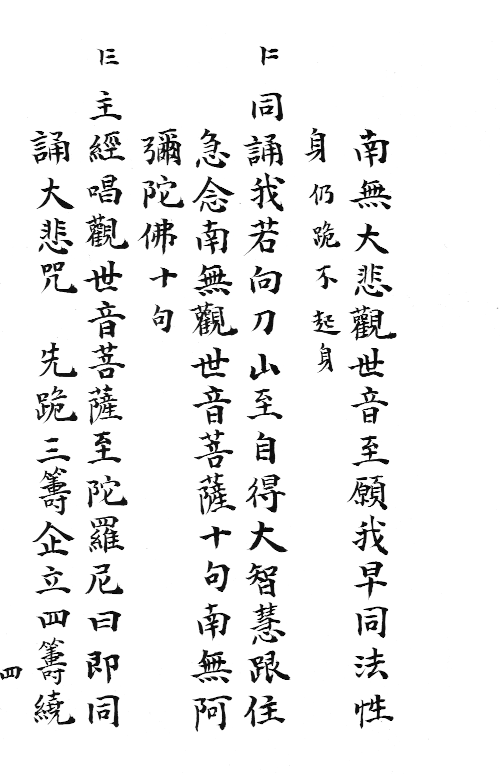 南無大悲觀世音至願我早同法性
身仍跪不起身
仁同誦我若向刀山至自得大智慧跟住
急念南無觀世音菩薩十句南無阿
彌陀佛十句
仨主經唱觀世音菩薩至陀羅尼曰即同
誦大悲咒 先跪三籌企立四籌繞
四